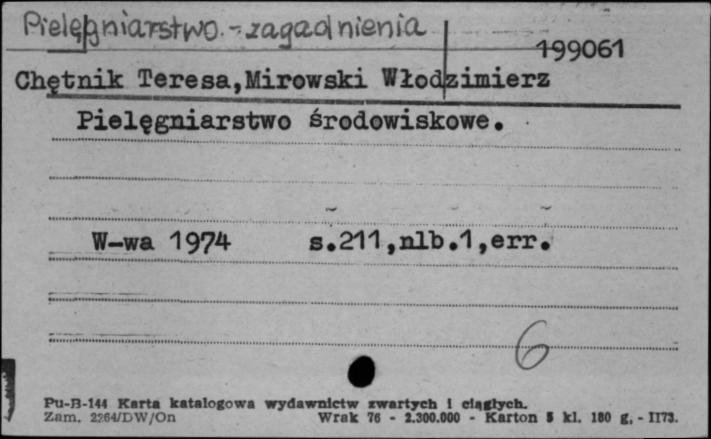 Pielęgniarstwo - zagadnienia
199061
Chętnik Teresa,Mirowski Włodzimierz
Pielęgniarstwo środowiskowe.
W-wa 1974 s.211,nlb.1,err.
6
Pu-B-144 Karta katalogowa wydawnictw zwartych i ciągłych.
Zam. 2264/DW/On Wrak 76 - 2.300.000 - Karton 5 kl. 180 g. - II73.